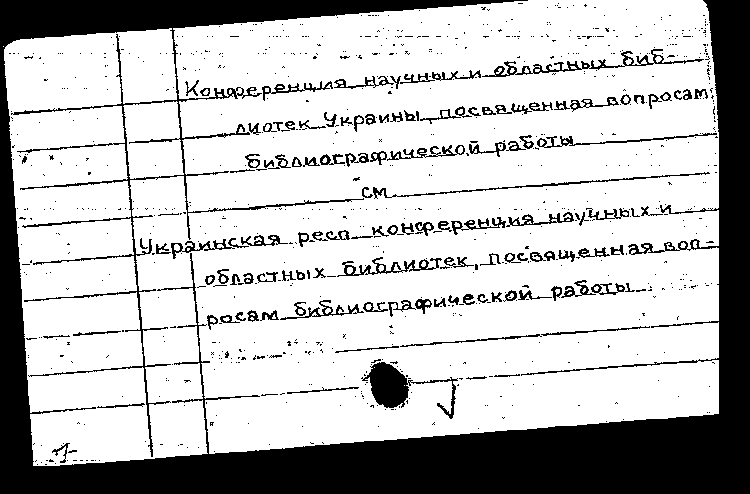 Конференция научных и областных биб-
лиотек Украины, посвященная вопросам
библиографической работы
см
Украинская респ. конференция научных и
областных библиотек, посвященная воп-
росам библиографической работы